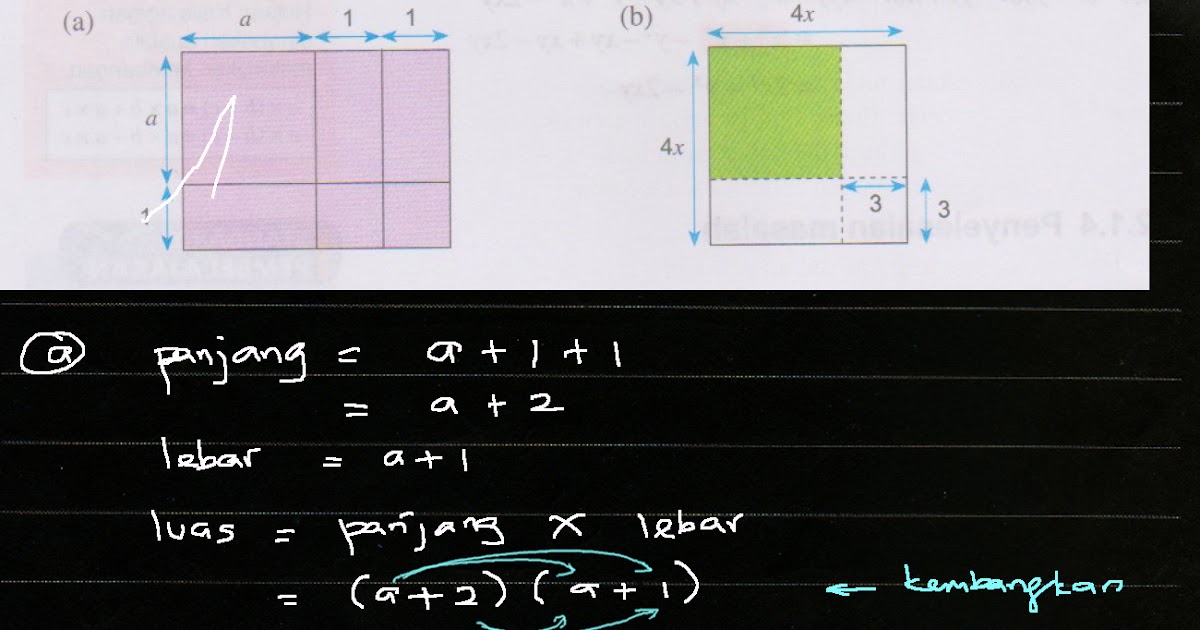 (a) a 1 1
a
1
(b) 4x
4x
3 3
2.1.4 Penyelesaian masalah
a panjang = a + 1 + 1
= a + 2
lebar = a + 1
luas = panjang × lebar
= (a + 2) (a + 1) ← kembangkan